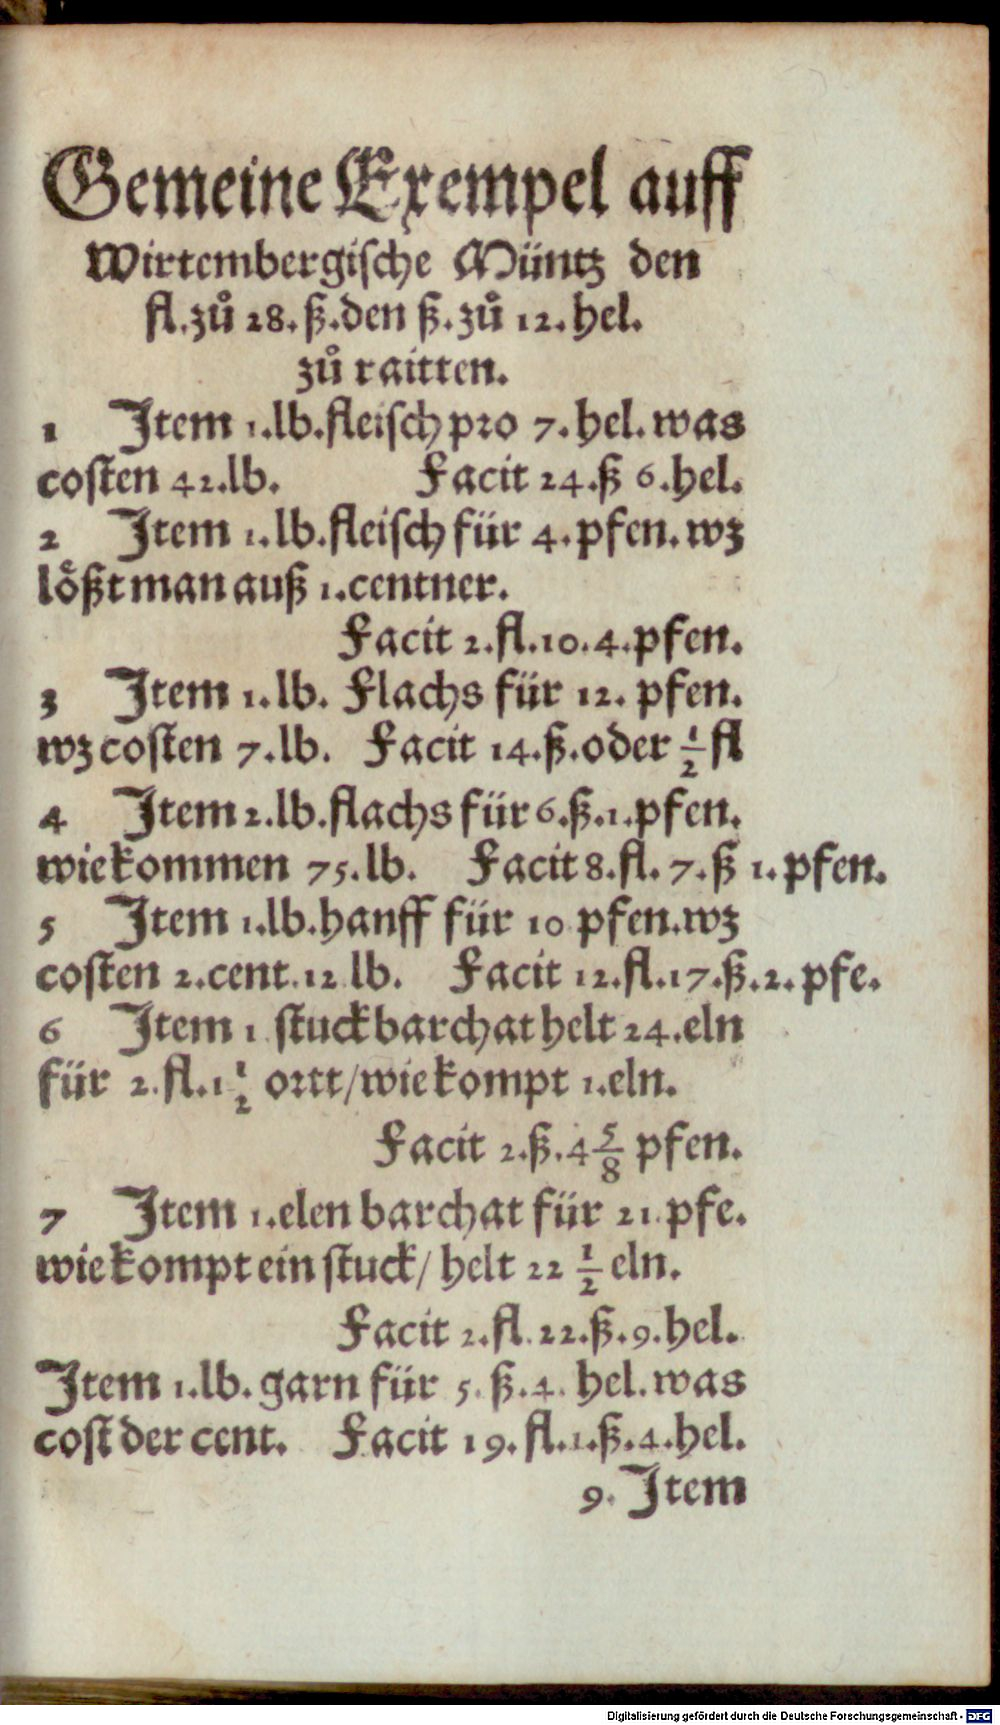 Gemeine Exempel auff
Wirtembergische Müntz den
fl. zuͦ 28. ß. den ß. zuͦ 12. hel.
zuͦ raitten.
1 Item 1. lb. fleisch pro 7. hel. was
costen 42. lb. Facit 24. ß 6. hel.
2 Item 1. lb. fleisch für 4. pfen. wz
loͤßt man auß 1. centner.
Facit 2. fl. 10. 4. pfen.
3 Item 1. lb. Flachs für 12. pfen.
wz costen 7. lb. Facit 14. ß. oder 1/2 fl
4 Item 2. lb. flachs für 6. ß. 1. pfen.
wie kommen 75. lb. Facit 8. fl. 7. ß 1. pfen.
5 Item 1. lb. hanff für 10 pfen. wz
costen 2. cent. 12 lb. Facit 12. fl. 17. ß. 2. pfe.
6 Item 1 stuck barchat helt 24. eln
für 2. fl. 1 1/2 ortt/ wie kompt 1. eln.
Facit 2. ß. 4 5/8 pfen.
7 Item 1. elen barchat für 21. pfe.
wie kompt ein stuck/ helt 22 1/2 eln.
Facit 2. fl. 22. ß. 9. hel.
Item 1. lb. garn für 5. ß. 4. hel. was
cost der cent. Facit 19. fl. 1. ß. 4. hel.
9. Item
Digitalisierung gefördert durch die Deutsche Forschungsgemeinschaft - DFG